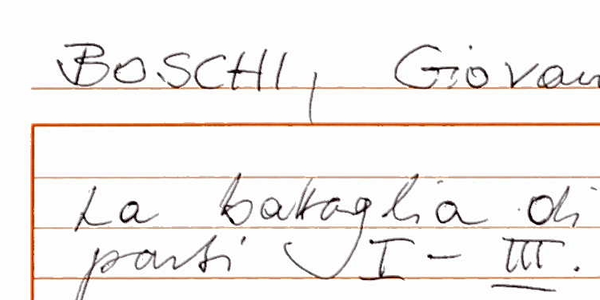 BOSCHI, Giovan
La battaglia di
parti I - III.